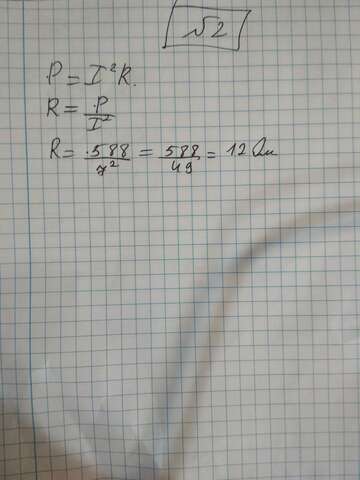 №2
P = I²R.
R = P/I²
R = 588/7² = 588/49 = 12 Ом